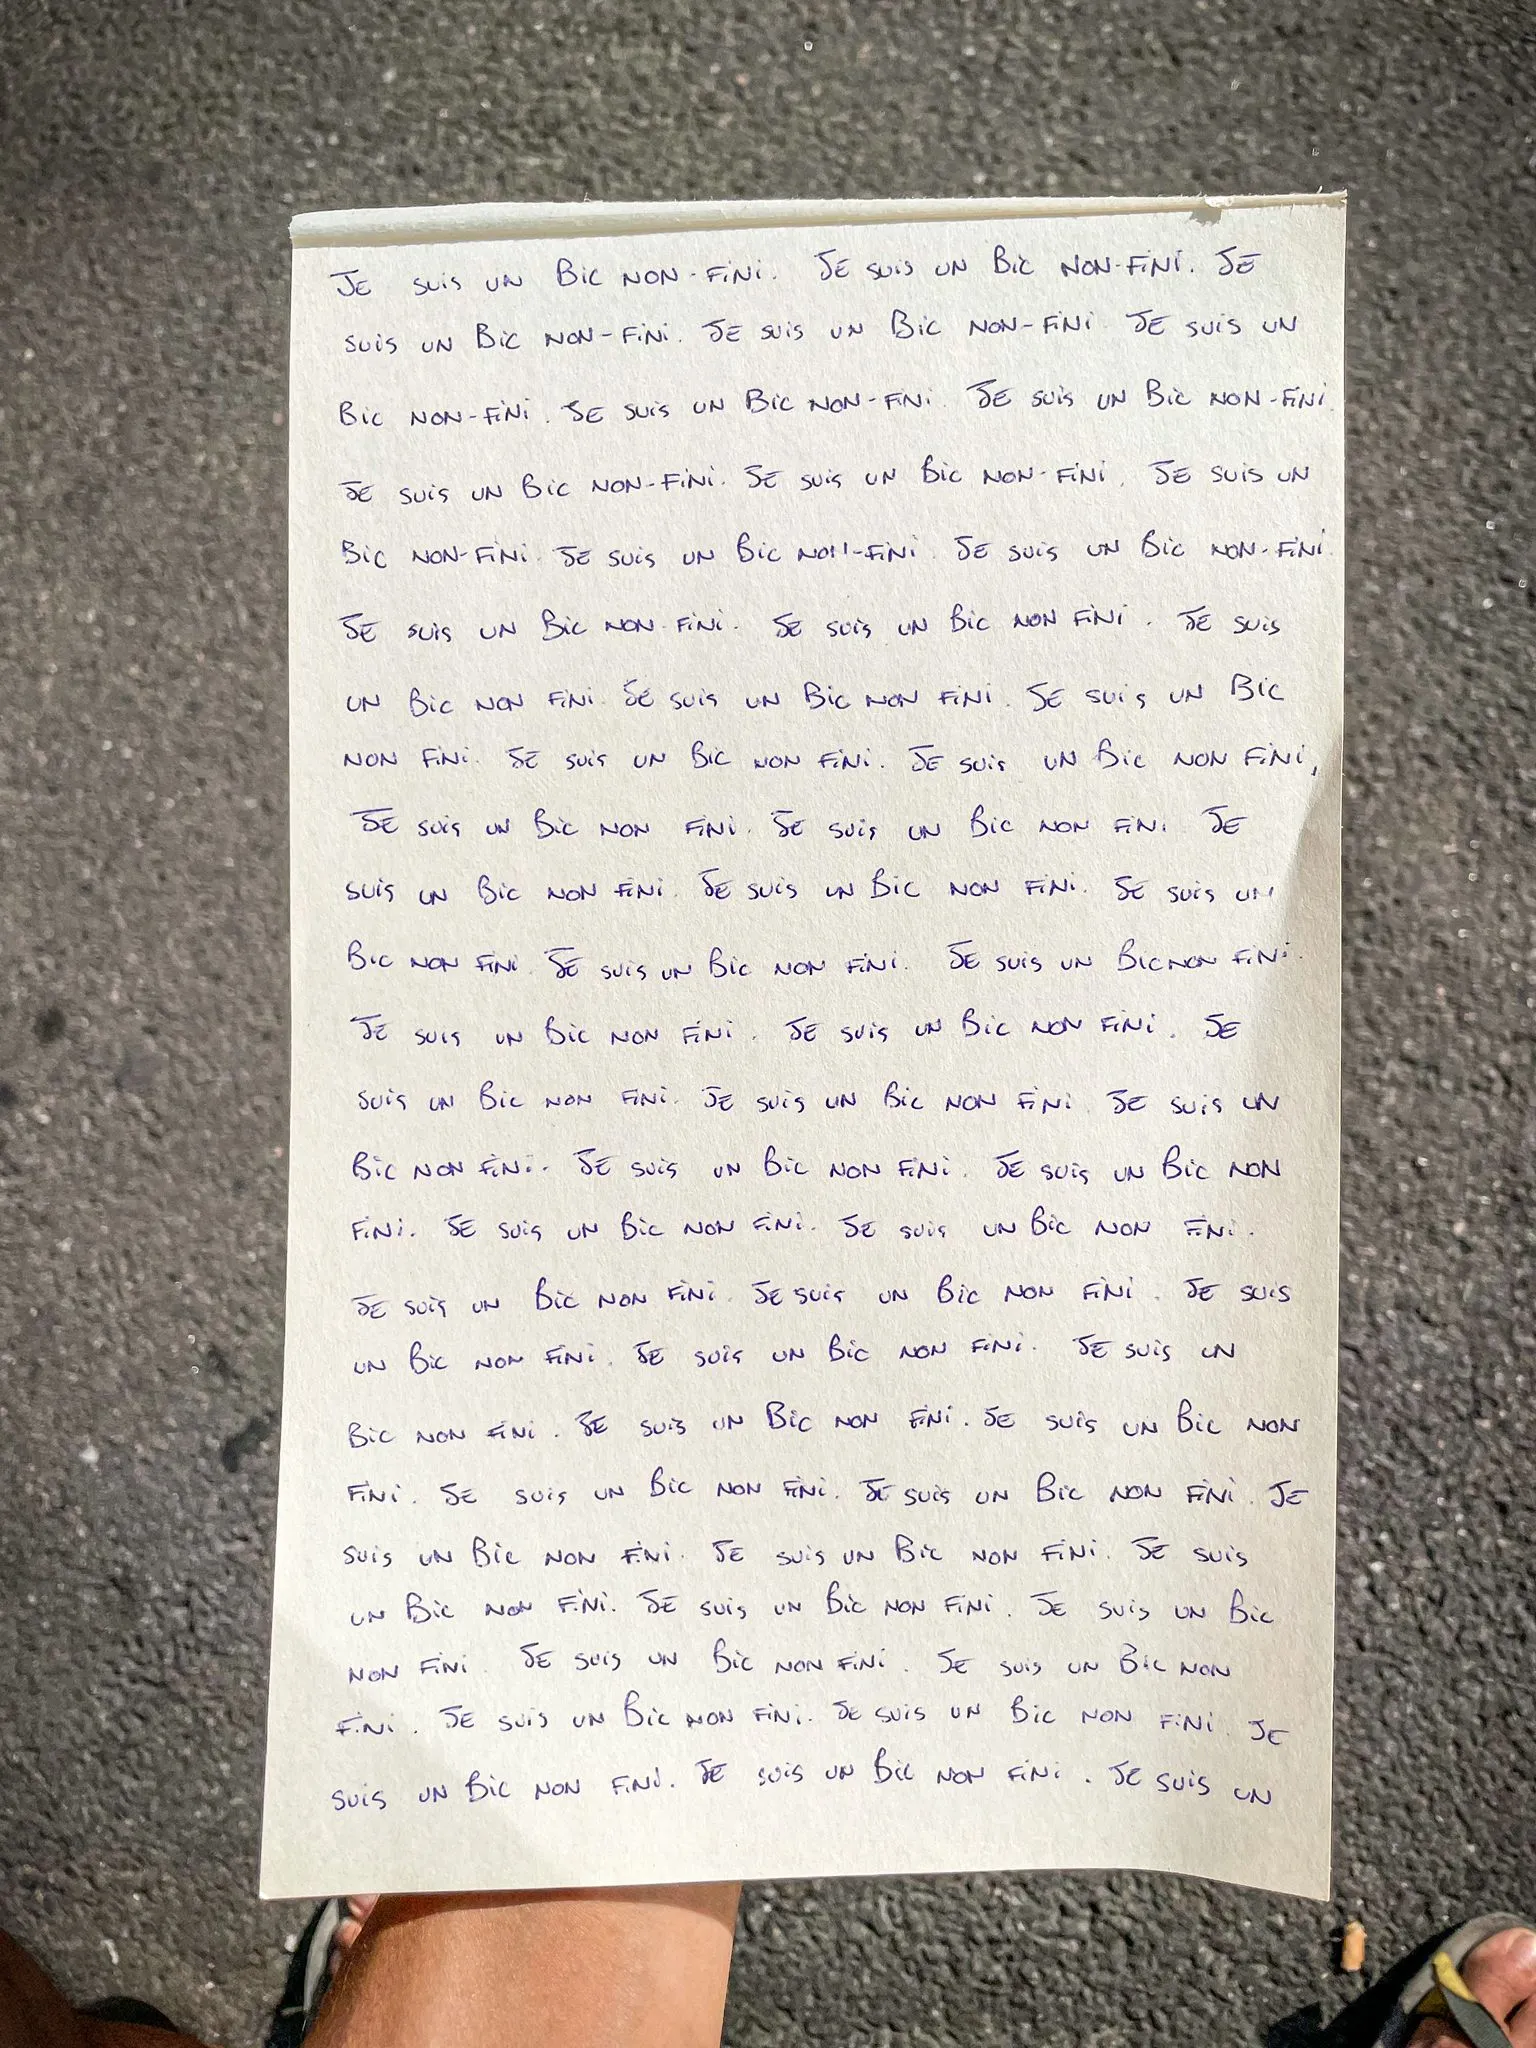 JE suis UN Bic NON-FiNi. JE suis UN Bic NON-FiNi. JE
suis UN Bic NON-FiNi. JE suis UN Bic NON-FiNi. JE suis UN
Bic NON-FiNi. JE suis UN Bic NON-FiNi. JE suis UN Bic NON-FiNi.
JE suis UN Bic NON-FiNi. JE suis UN Bic NON-FiNi. JE suis UN
Bic NON-FiNi. JE suis UN Bic NON-FiNi. JE suis UN Bic NON-FiNi.
JE suis UN Bic NON-FiNi. JE suis UN Bic NON FiNi. JE suis
UN Bic NON FiNi. JE suis UN Bic NON FiNi. JE suis UN Bic
NON FiNi. JE suis UN Bic NON FiNi. JE suis UN Bic NON FiNi.
JE suis UN Bic NON FiNi. JE suis UN Bic NON FiNi. JE
suis UN Bic NON FiNi. JE suis UN Bic NON FiNi. JE suis UN
Bic NON FiNi. JE suis UN Bic NON FiNi. JE suis UN Bic NON FiNi.
JE suis UN Bic NON FiNi. JE suis UN Bic NON FiNi. JE
suis UN Bic NON FiNi. JE suis UN Bic NON FiNi. JE suis UN
Bic NON FiNi. JE suis UN Bic NON FiNi. JE suis UN Bic NON
FiNi. JE suis UN Bic NON FiNi. JE suis UN Bic NON FiNi.
JE suis UN Bic NON FiNi. JE suis UN Bic NON FiNi. JE suis
UN Bic NON FiNi. JE suis UN Bic NON FiNi. JE suis UN
Bic NON FiNi. JE suis UN Bic NON FiNi. JE suis UN Bic NON
FiNi. JE suis UN Bic NON FiNi. JE suis UN Bic NON FiNi. JE
suis UN Bic NON FiNi. JE suis UN Bic NON FiNi. JE suis
UN Bic NON FiNi. JE suis UN Bic NON FiNi. JE suis UN Bic
NON FiNi. JE suis UN Bic NON FiNi. JE suis UN Bic NON
FiNi. JE suis UN Bic NON FiNi. JE suis UN Bic NON FiNi. JE
suis UN Bic NON FiNi. JE suis UN Bic NON FiNi. JE suis UN